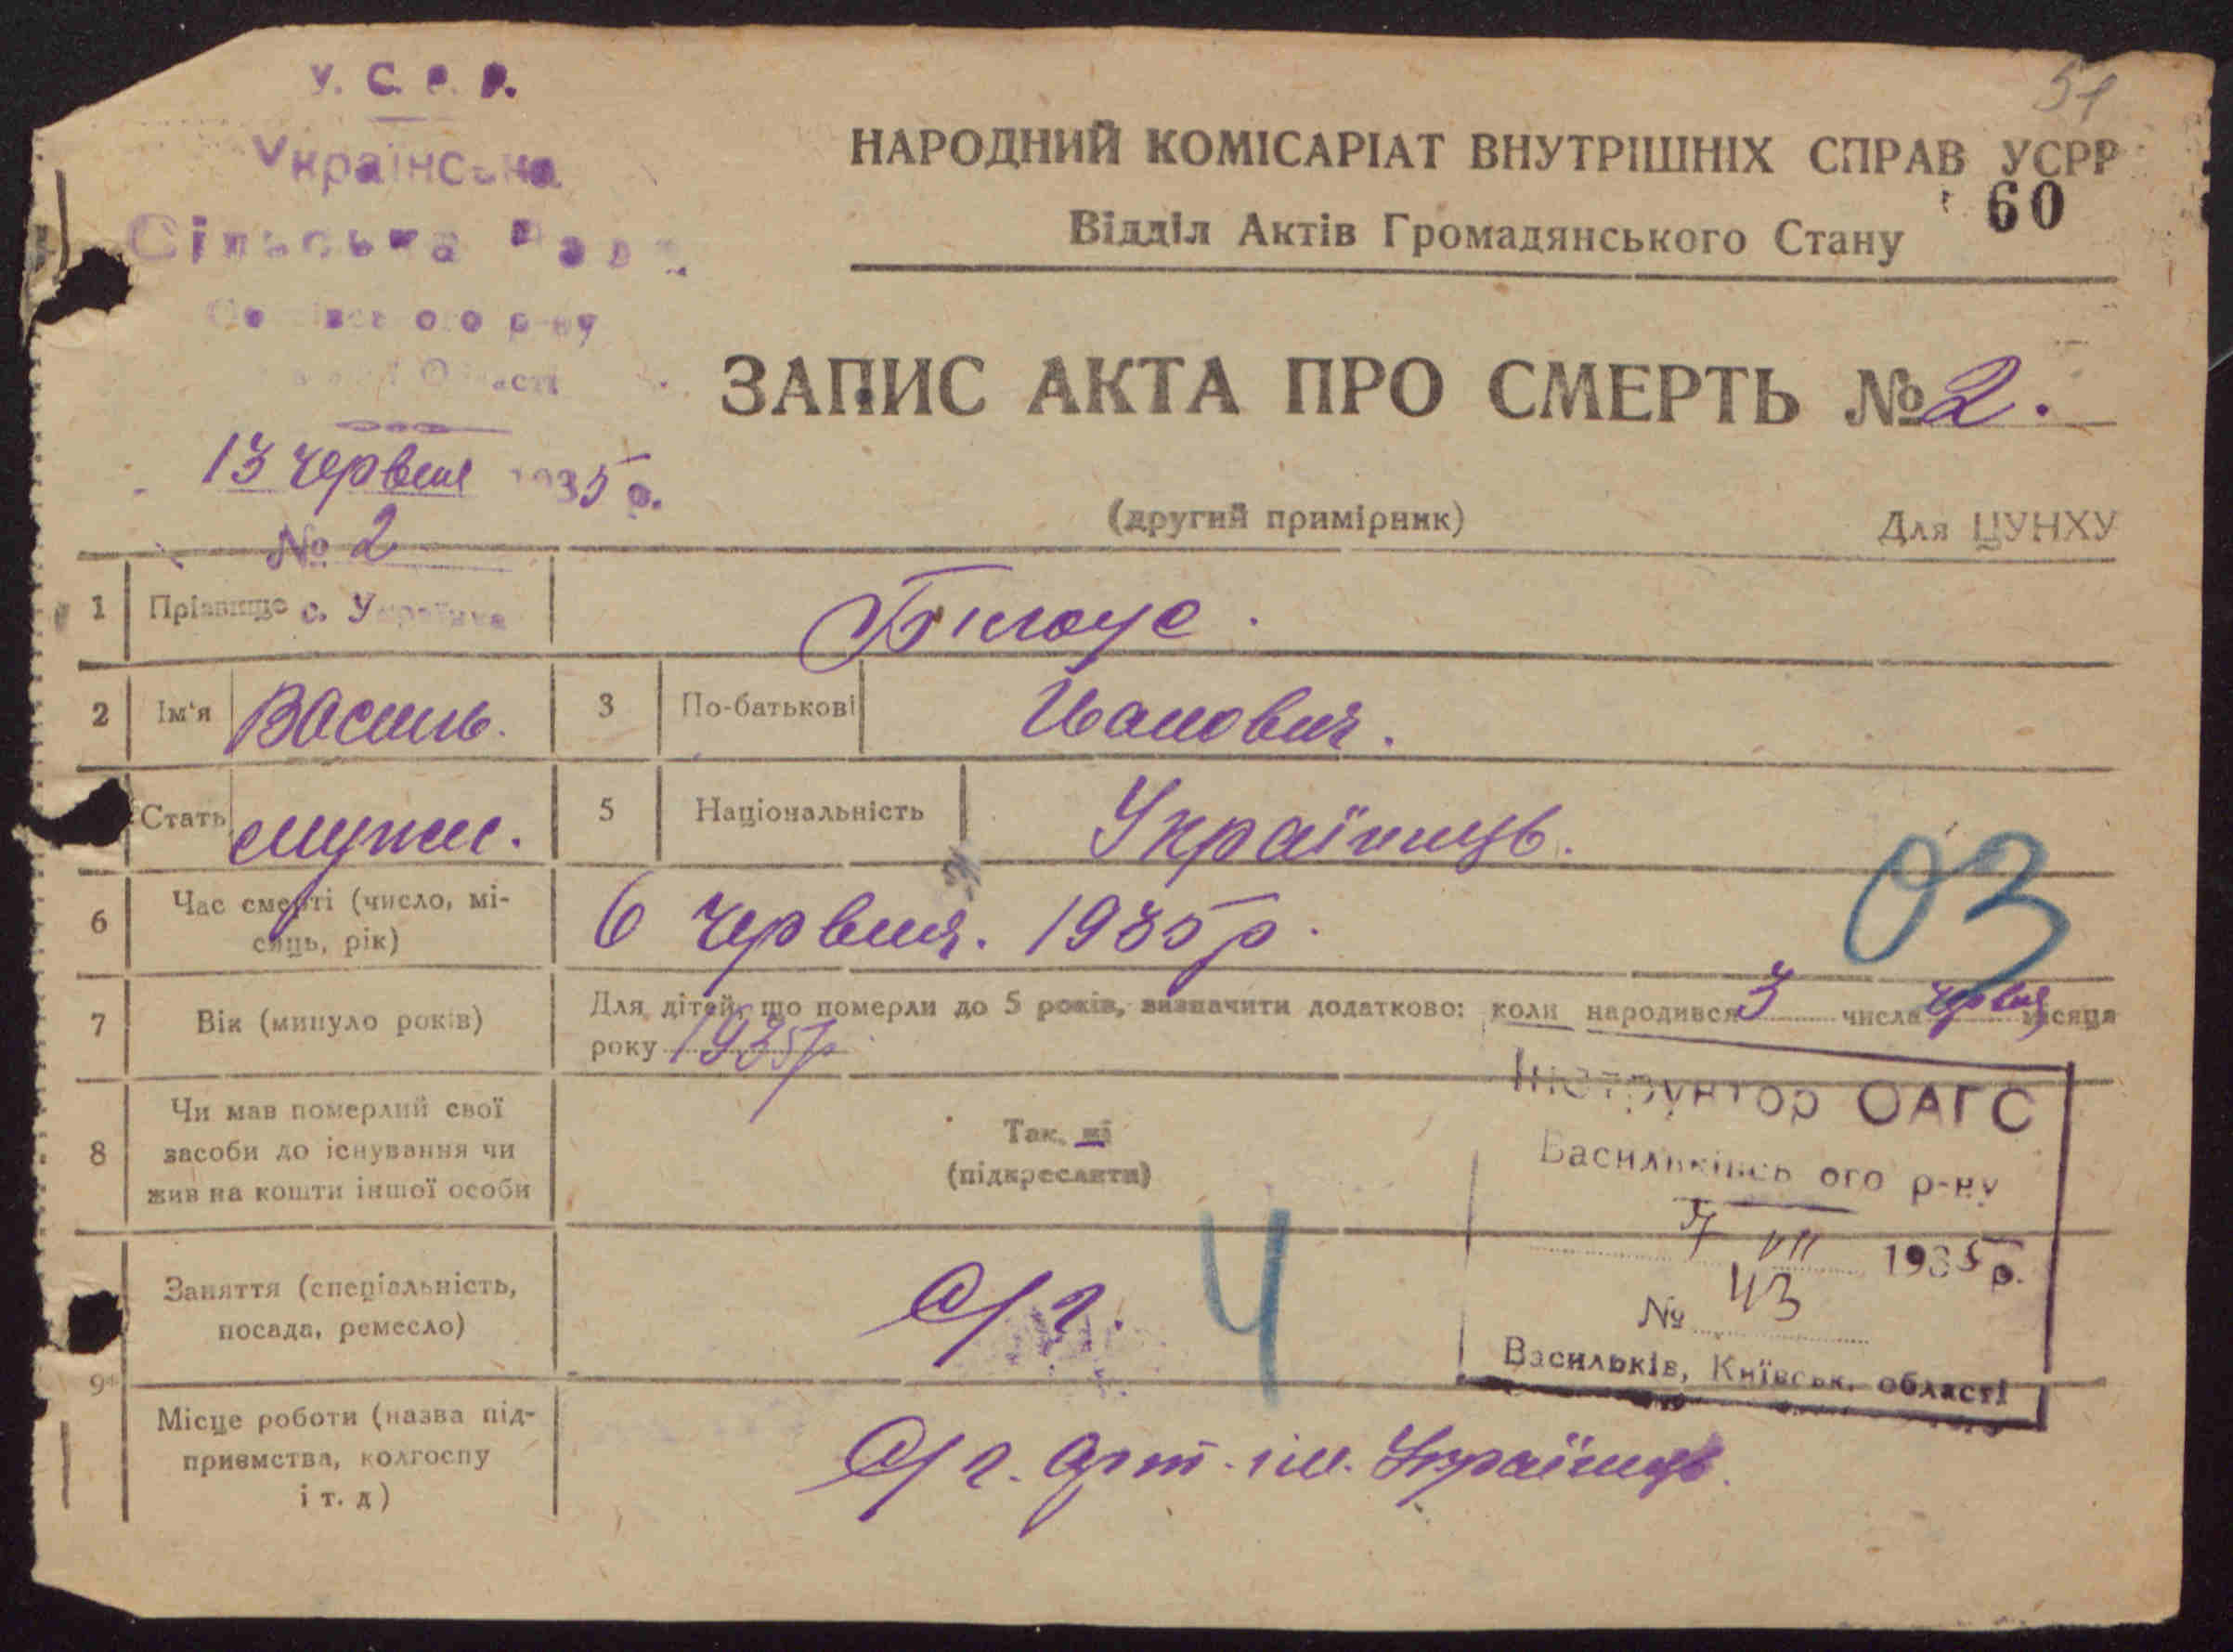 У. С. Р. Р.
Українська
Сільська Рада
р-ну
Області
13 червня 1935 р.
№ 2
51
НАРОДНИЙ КОМІСАРІАТ ВНУТРІШНІХ СПРАВ УСРР
60
Відділ Актів Громадянського Стану
ЗАПИС АКТА ПРО СМЕРТЬ № 2.
(другий примірник)
Для ЦУНХУ
1 Прізвище с. Українка Білоус.
2 Ім'я Василь. 3 По-батькові Іванович.
Стать мужс. 5 Національність Українець.
03
6 Час смерті (число, мі-
сяць, рік) 6 червня. 1935 р.
7 Вік (минуло років) Для дітей, що померли до 5 років, визначити додатково: коли народився 3 числа червня місяця
року 1935 р
8 Чи мав померлий свої
засоби до існування чи
жив на кошти іншої особи
Так, ні
(підкреслити)
Інструктор ОАГС
Васильківського р-ну
7 VII 1935 р.
№ 43
Васильків, Київськ. області
9 Заняття (спеціальність,
посада, ремесло) С/г.
4
Місце роботи (назва під-
приємства, колгоспу
і т. д) С/г. арт. ім. Українець.